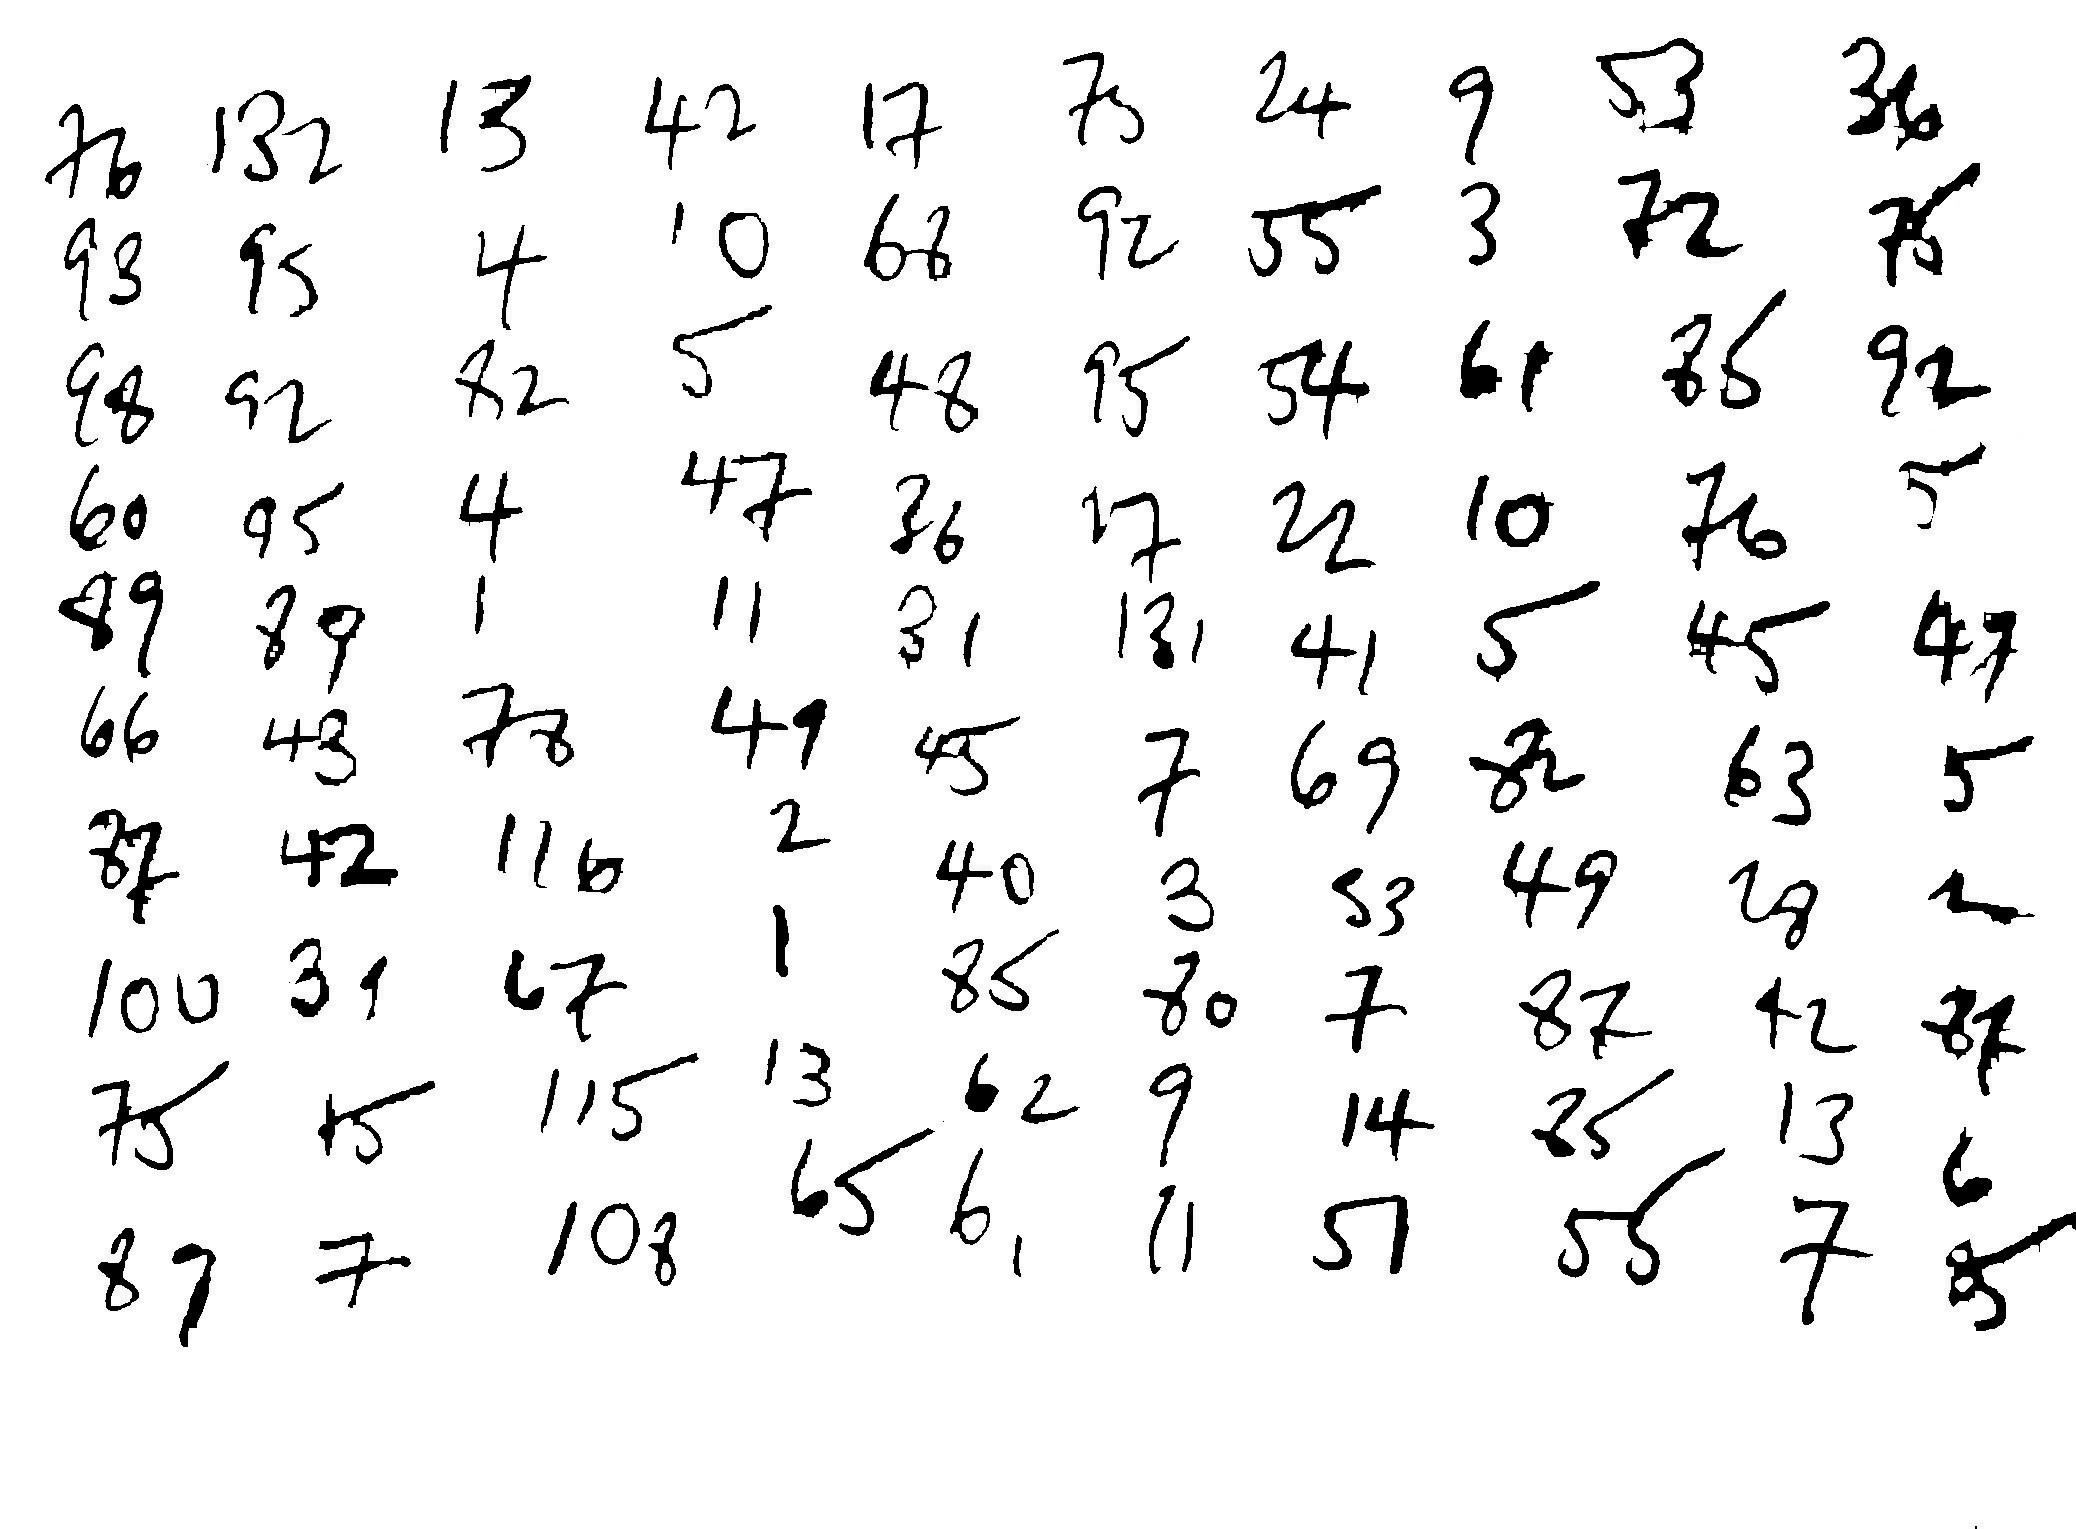 76 132 13 42 17 75 24 9 53 36
93 95 4 10 68 92 55 3 72 75
98 92 82 5 48 95 54 61 85 92
60 95 4 47 36 17 22 10 76 5
89 89 1 11 31 131 41 5 45 47
66 43 78 49 45 7 69 82 63 5
87 42 116 2 40 3 53 49 28 2
100 39 67 1 85 80 7 87 42 87
75 15 115 13 62 9 14 85 13 6
89 7 108 65 61 11 51 55 7 85